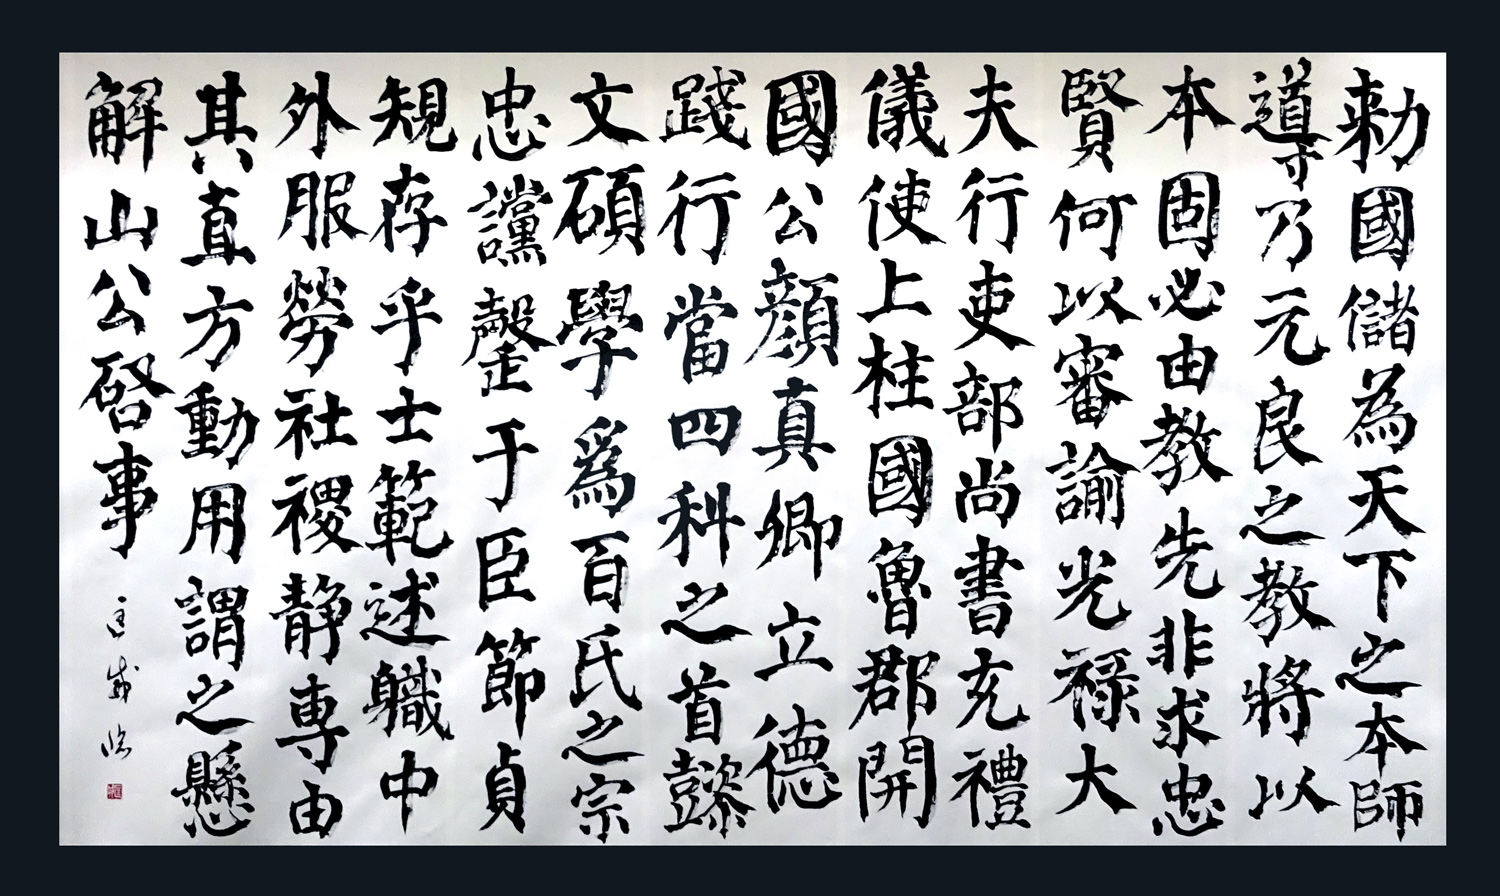 勅國儲為天下之本師
導乃元良之教將以
本固必由教先非求忠
賢何以審諭光祿大
夫行吏部尚書充禮
儀使上柱國魯郡開
國公顏真卿立德
踐行當四科之首懿
文碩學爲百氏之宗
忠讜罄于臣節貞
規存乎士範述職中
外服勞社稷靜專由
其直方動用謂之懸
解山公啓事